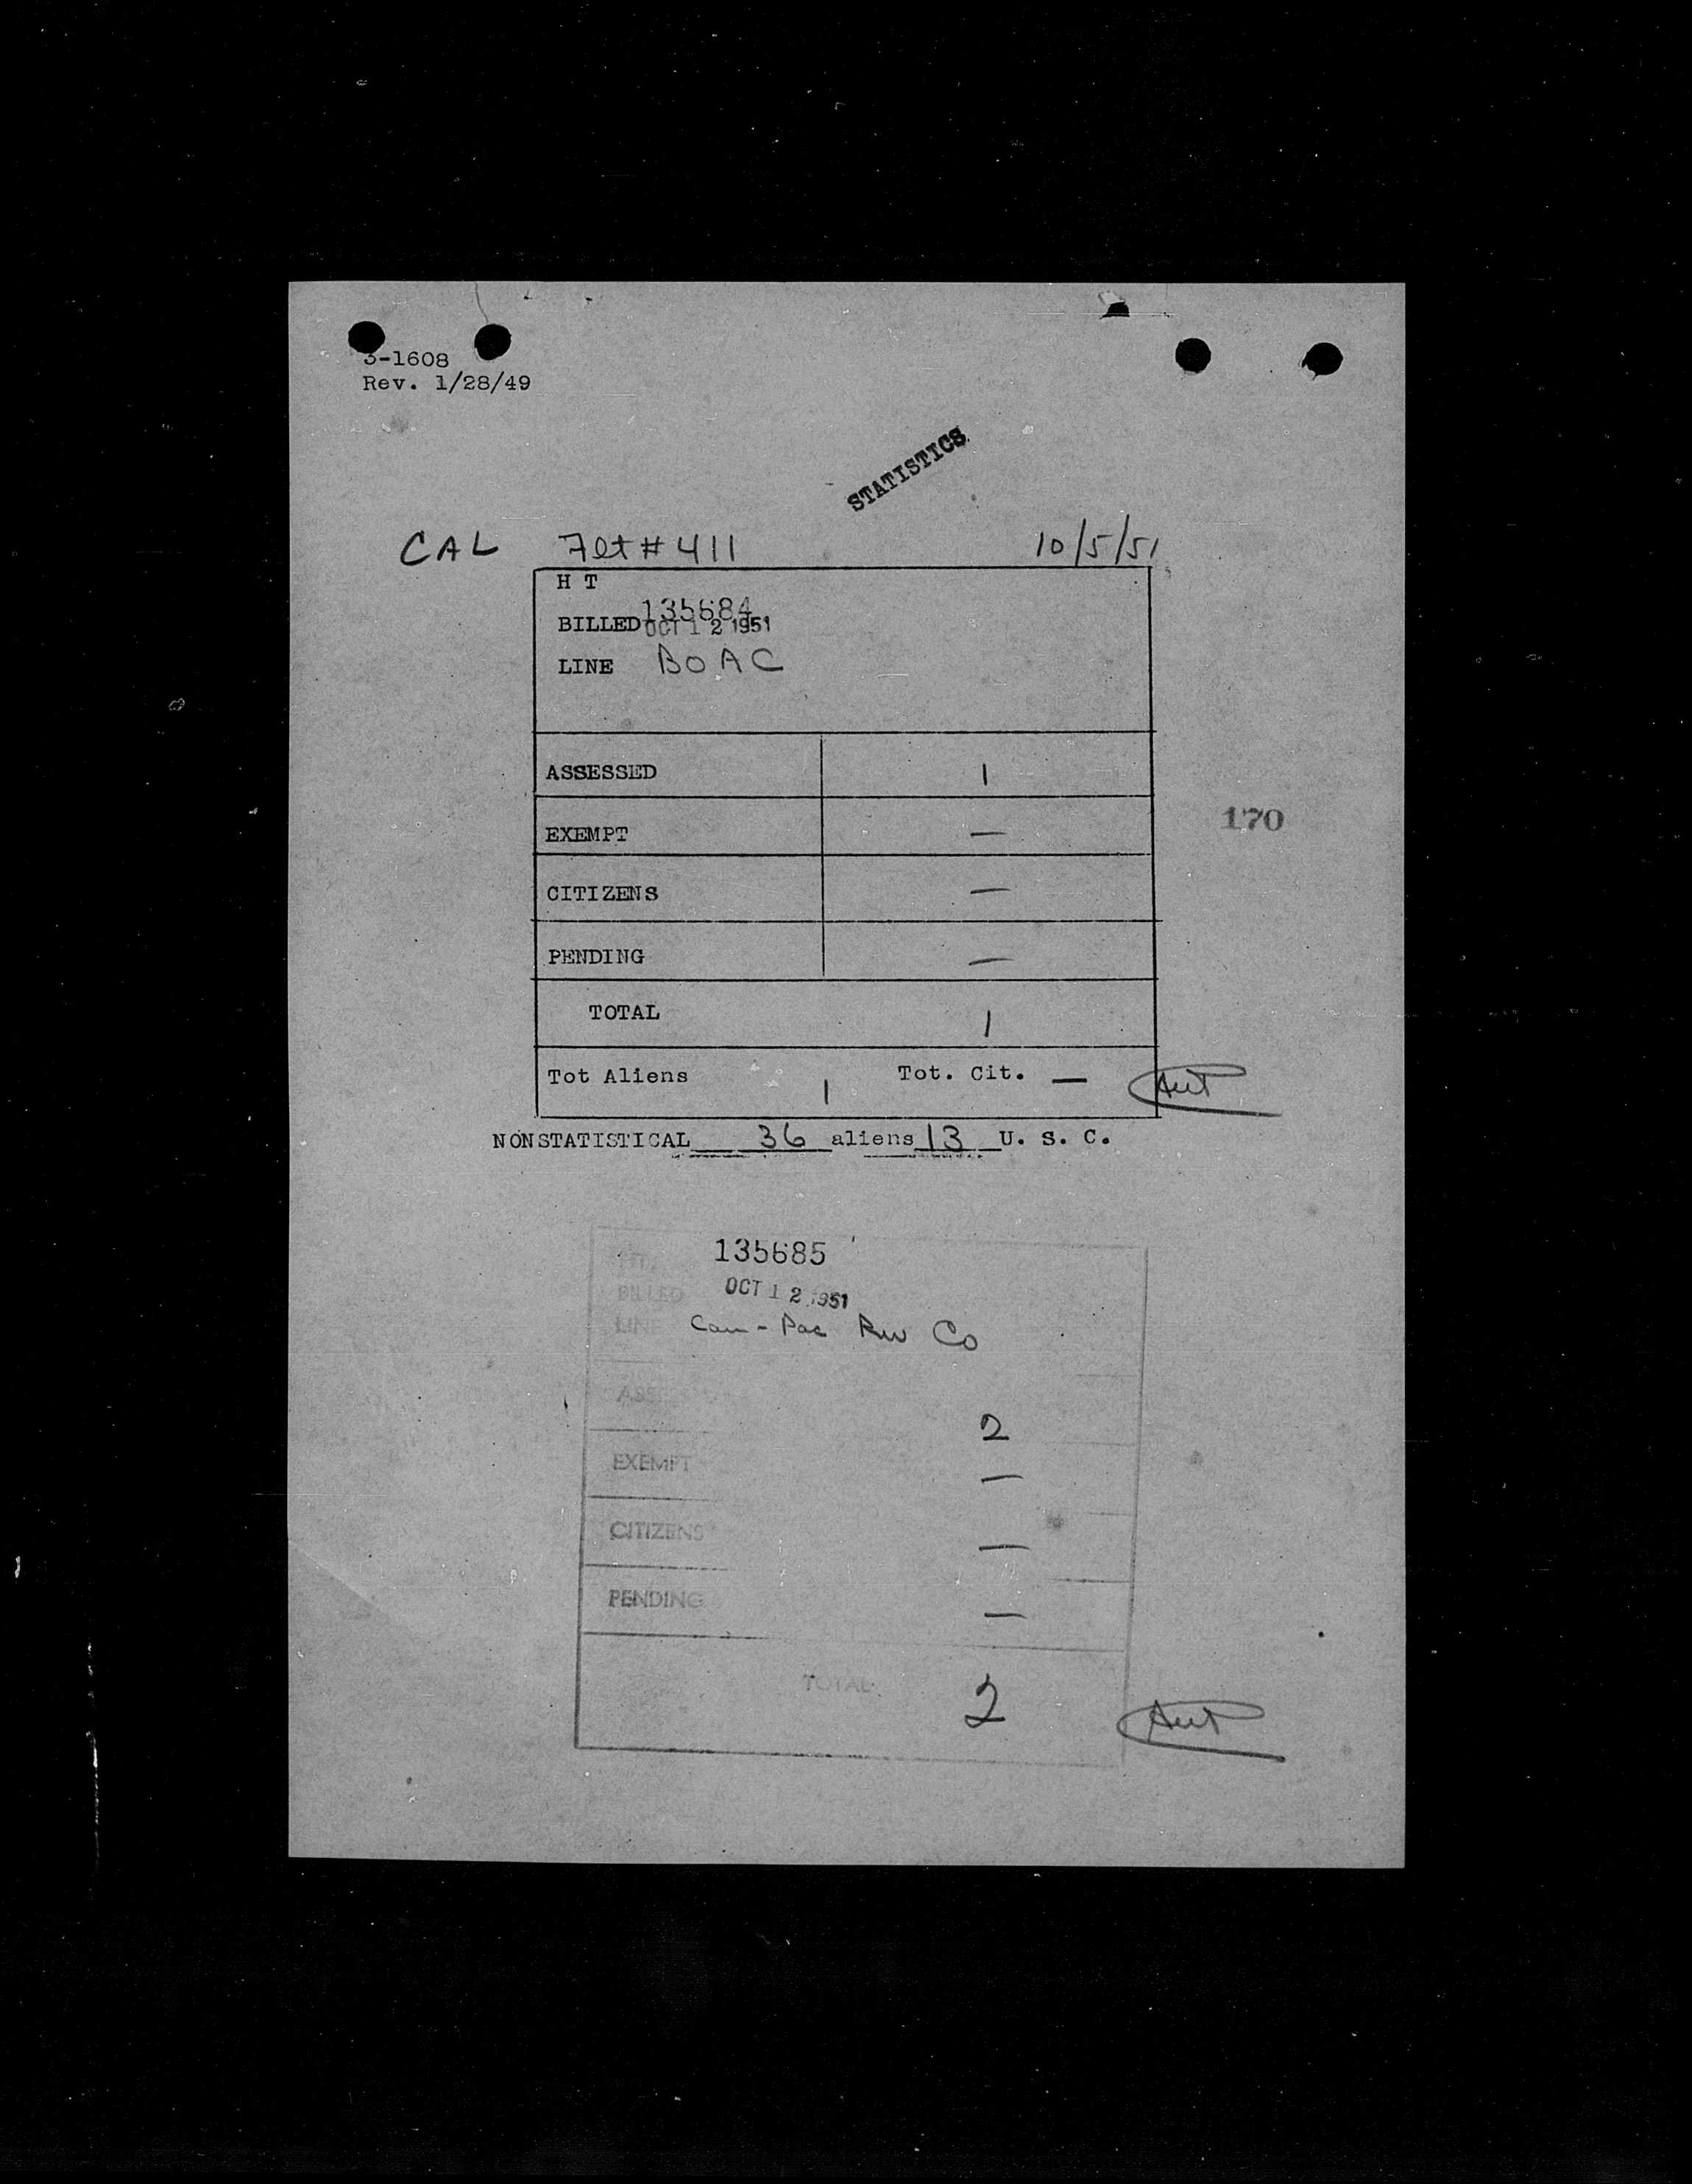 3-1608
Rev. 1/28/49
STATISTICS
CAL Flt # 411 10/5/51
H T
135684
BILLED OCT 12 1951
LINE BOAC
ASSESSED 1
170
EXEMPT —
CITIZENS —
PENDING —
TOTAL 1
Tot Aliens 1 Tot. Cit. —
NONSTATISTICAL 36 aliens 13 U. S. C.
135685
HT.
BILLED OCT 12 1951
LINE Can-Pac Rw Co
ASS 2
EXEMPT —
CITIZENS —
PENDING —
TOTAL 2